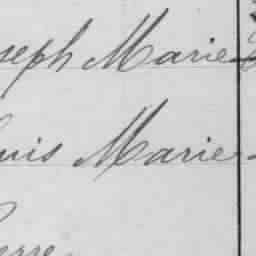 seph Marie
uis Marie